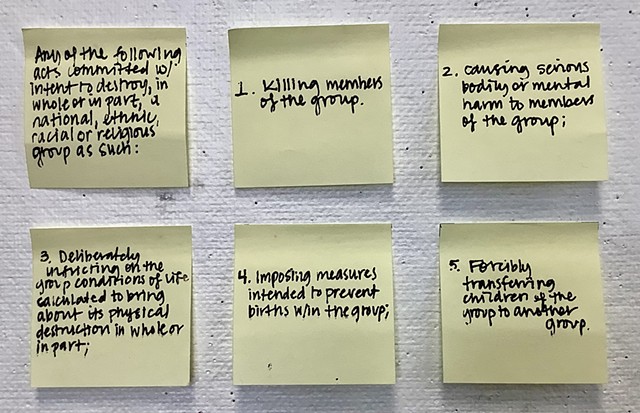 Any of the following
acts committed w/
intent to destroy, in
whole or in part, a
national, ethnic,
racial or religious
group as such:
1. Killing members
of the group.
2. Causing serious
bodily or mental
harm to members
of the group;
3. Deliberately
inflicting on the
group conditions of life
calculated to bring
about its physical
destruction in whole or
in part;
4. Imposing measures
intended to prevent
births w/in the group;
5. Forcibly
transferring
children of the
group to another
group.